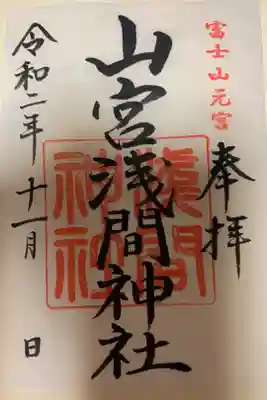 富士山元宮
奉拝
山宮浅間神社
淺間神社
令和二年十一月 日